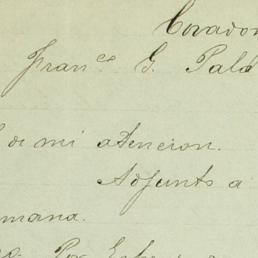 Covadon
Franco G. Pala
de mi atencion.
Adjunto a
mana.
Por